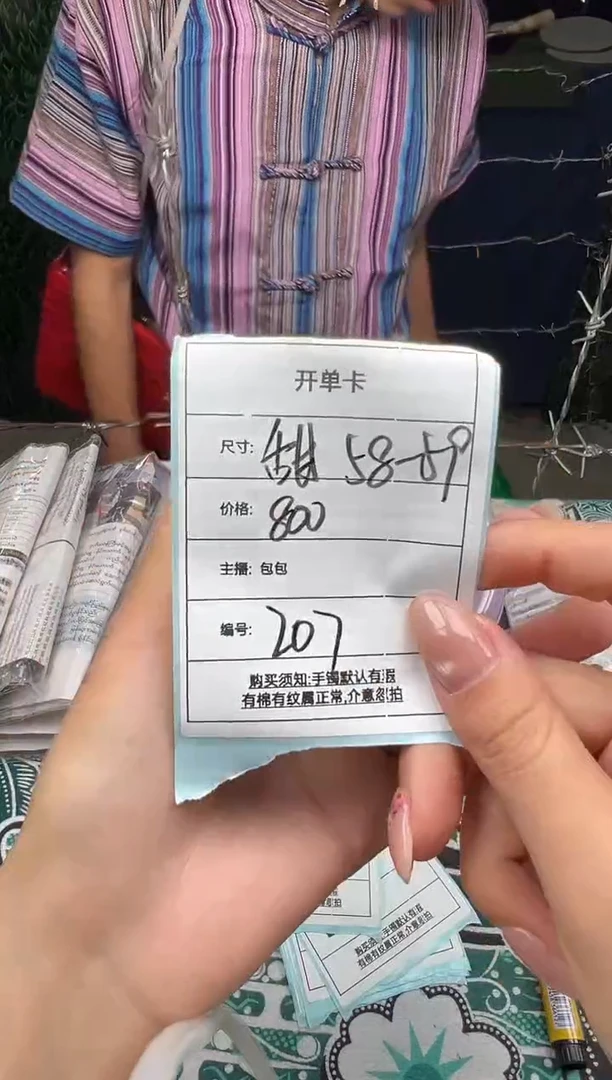 开单卡
尺寸: 甜 58-59
价格: 800
主播: 包包
编号: 207
购买须知:手镯默认有瑕
有棉有纹属正常,介意勿拍
手镯默认有瑕
有棉有纹属正常,介意勿拍